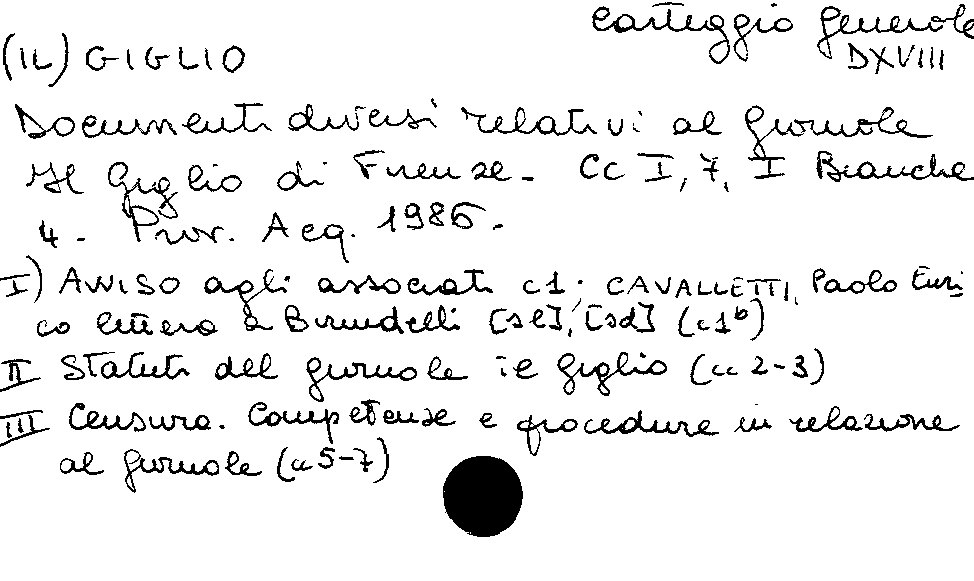 Carteggio generale
(IL) GIGLIO
DXVIII
Documenti diversi relativi al giornale
Il Giglio di Firenze. Cc I, 7, I Bianche
4. Prov. Acq. 1986.
I) AVVISO agli associati c1; CAVALLETTI, Paolo Enri
co lettera a Birindelli [sl], [sd] (c1b)
II Statuti del giornale il Giglio (cc 2-3)
III Censura. Competenze e procedure in relazione
al giornale (cc 5-7)